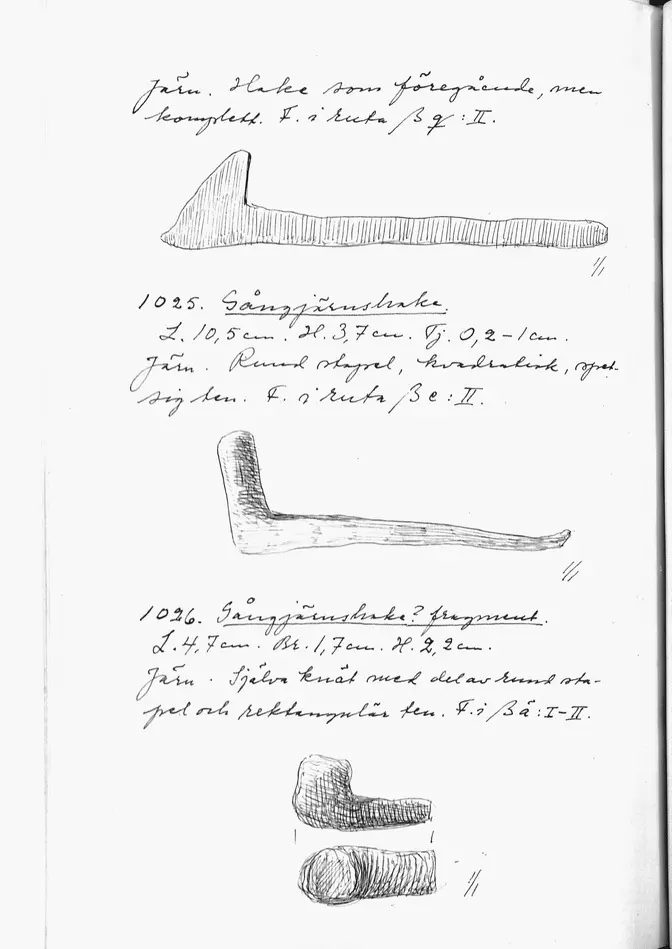 Järn. Hake som föregående, men
komplett. F. i ruta β q : II.
1/1
1025. Gångjärnshake.
L. 10,5 cm. H. 3,7 cm. Tj. 0,2-1 cm.
Järn. Rund stapel, kvadratisk, spet-
sig ten. F. i ruta β e : II.
1/1
1026. Gångjärnshake? fragment.
L. 4,7 cm. Br. 1,7 cm. H. 2,2 cm.
Järn. Själva knät med del av rund sta-
pel och rektangulär ten. F. i β å : I-II.
1/1